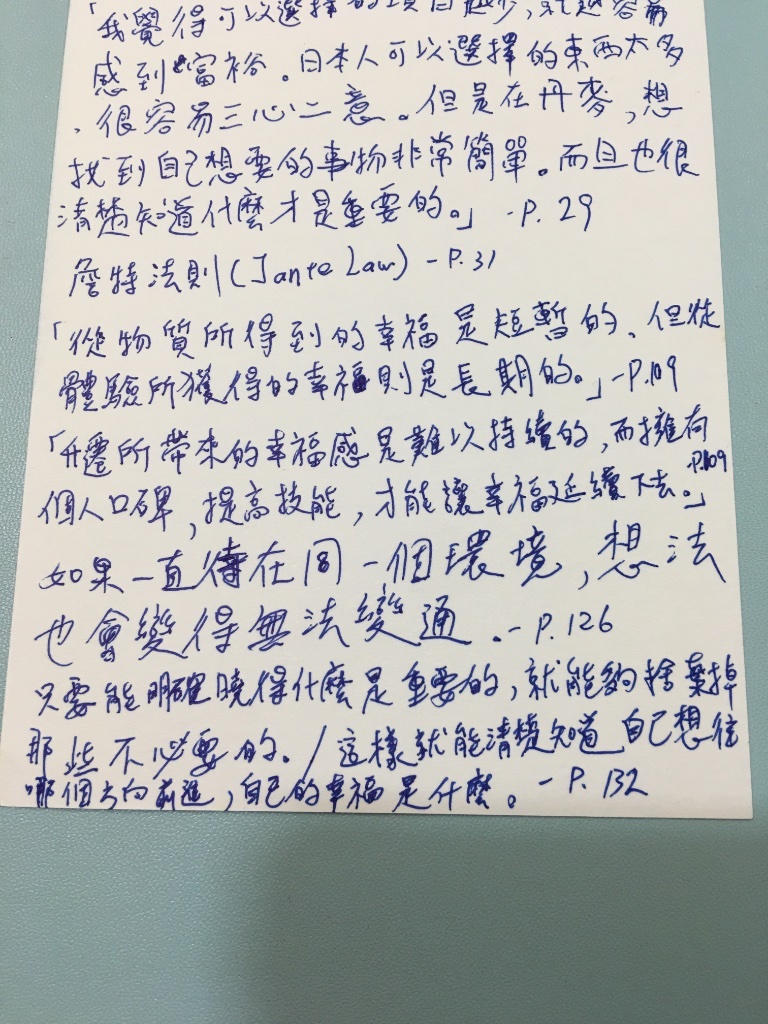 「我覺得可以選擇的項目越少,就越容易
感到富裕。日本人可以選擇的東西太多
,很容易三心二意。但是在丹麥,想
找到自己想要的事物非常簡單。而且也很
清楚知道什麼才是重要的。」-P.29
詹特法則(Jante Law) -P.31
「從物質所得到的幸福是短暫的、但從
體驗所獲得的幸福則是長期的。」-P.109
「升遷所帶來的幸福感是難以持續的,而擁有
個人口碑,提高技能,才能讓幸福延續下去。」-P.109
如果一直待在同一個環境,想法
也會變得無法變通。-P.126
只要能明確曉得什麼是重要的,就能夠捨棄掉
那些不必要的。/這樣就能清楚知道自己想往
哪個方向前進,自己的幸福是什麼。-P.132